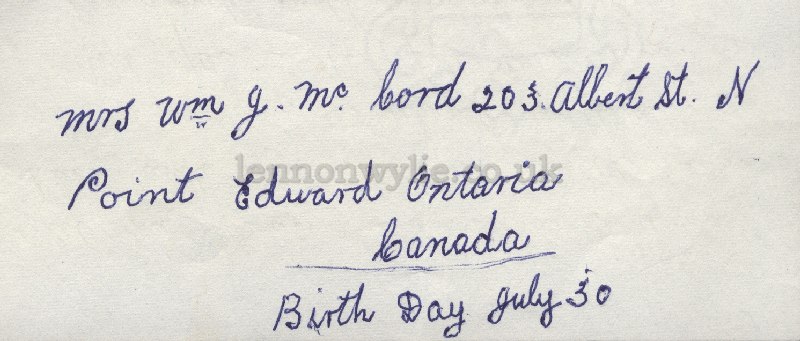 mrs Wm J. Mc. Cord 203 Albert St. N
lennonwylie.co.uk
Point Edward Ontaria
Canada
Birth Day July 30